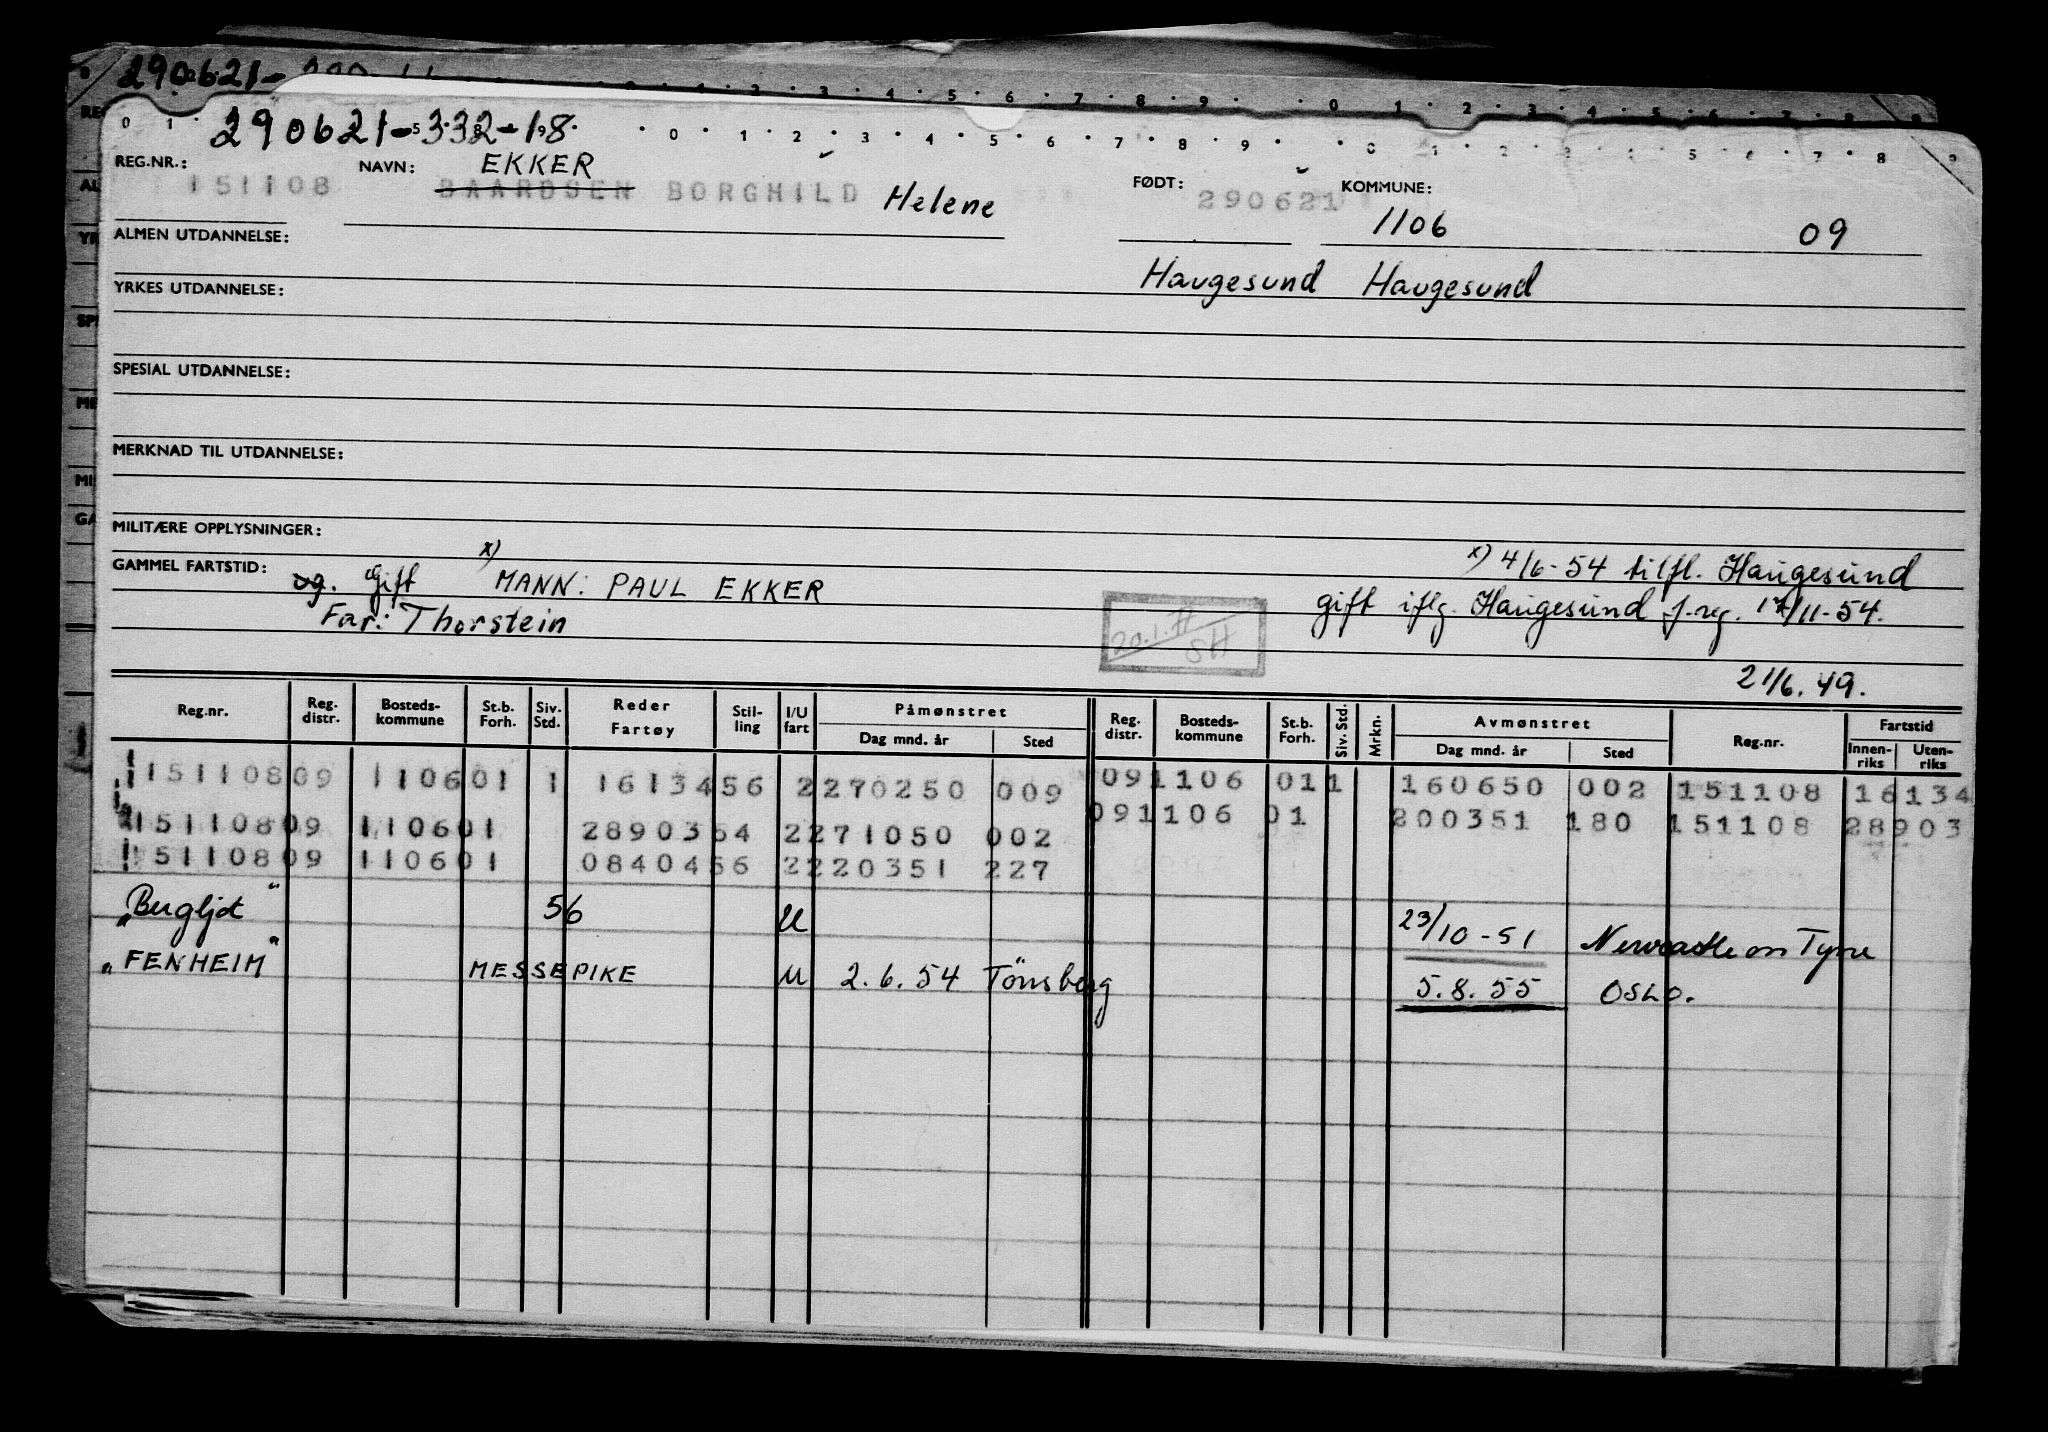 290621-
0 1 2 3 4 5 6 7 8 9 0 1 2 3 4 5 6 7 8 9
290621-332-18.
0 1 0 1 2 3 4 5 6 7 8 9 0 1 2 3 4 5 6 7 8 9
REG.NR.: 151108 NAVN: EKKER
BAARDSEN BORGHILD Helene FØDT: 290621 KOMMUNE: 1106 09
ALMEN UTDANNELSE:
Haugesund Haugesund
YRKES UTDANNELSE:
SPESIAL UTDANNELSE:
MERKNAD TIL UTDANNELSE:
MILITÆRE OPPLYSNINGER:
x) 4/6-54 tilfl. Haugesund
GAMMEL FARTSTID: ug. Gift x) MANN: PAUL EKKER
gift iflg. Haugesund f.reg. 17/11-54.
Far: Thorstein
SH
21/6.49.
Reg.nr. Reg. distr. Bosteds-kommune St.b. Forh. Siv. Std. Reder Fartøy Stil-ling I/U fart Påmønstret Dag mnd. år Sted Reg. distr. Bosteds-kommune St.b. Forh. Siv. Std. Mrkn. Avmønstret Dag mnd. år Sted Reg.nr. Fartstid Innen-riks Uten-riks
151108 09 1106 01 1 16134 56 2 270250 009 09 1106 01 1 160650 002 151108 16134
151108 09 1106 01 28903 54 2 271050 002 09 1106 01 200351 180 151108 28903
151108 09 1106 01 08404 56 2 220351 227
"Bergljot" 56 U 23/10-51 Newcastle on Tyne
"FENHEIM" MESSEPIKE U 2.6.54 Tønsberg 5.8.55 OSLO.